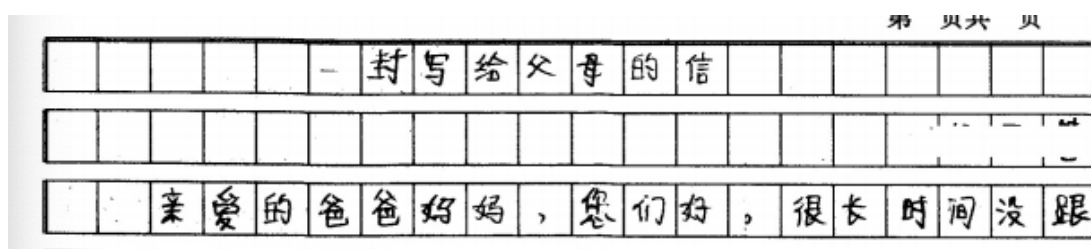 第 页共 页
一封写给父母的信
亲爱的爸爸妈妈，您们好，很长时间没跟